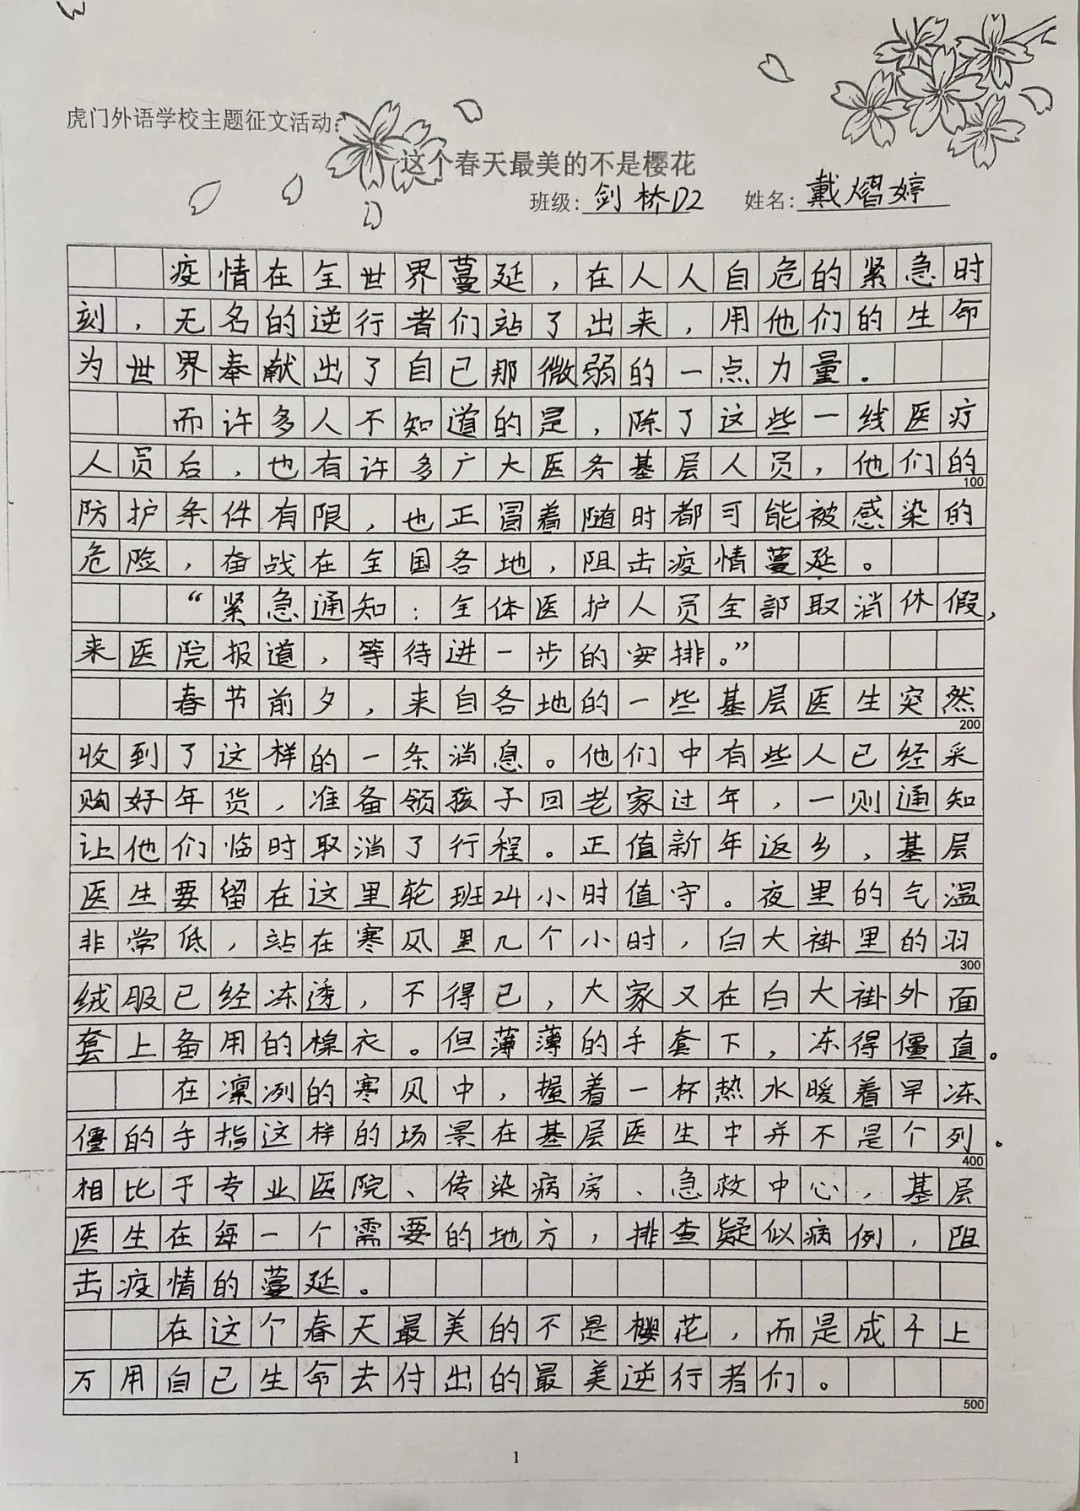 虎门外语学校主题征文活动:
这个春天最美的不是樱花
班级: 剑桥D2 姓名: 戴熠婷
疫情在全世界蔓延，在人人自危的紧急时
刻，无名的逆行者们站了出来，用他们的生命
为世界奉献出了自已那微弱的一点力量。
而许多人不知道的是，除了这些一线医疗
人员后，也有许多广大医务基层人员，他们的
100
防护条件有限，也正冒着随时都可能被感染的
危险，奋战在全国各地，阻击疫情蔓延。
“紧急通知：全体医护人员全部取消休假，
来医院报道，等待进一步的安排。”
春节前夕，来自各地的一些基层医生突然
200
收到了这样的一条消息。他们中有些人已经采
购好年货，准备领孩子回老家过年，一则通知
让他们临时取消了行程。正值新年返乡，基层
医生要留在这里轮班24小时值守。夜里的气温
非常低，站在寒风里几个小时，白大褂里的羽
300
绒服已经冻透，不得已，大家又在白大褂外面
套上备用的棉衣。但薄薄的手套下，冻得僵直。
在凛冽的寒风中，握着一杯热水暖着早冻
僵的手指这样的场景在基层医生中并不是个列。
400
相比于专业医院、传染病房、急救中心，基层
医生在每一个需要的地方，排查疑似病例，阻
击疫情的蔓延。
在这个春天最美的不是樱花，而是成千上
万用自已生命去付出的最美逆行者们。
500
1